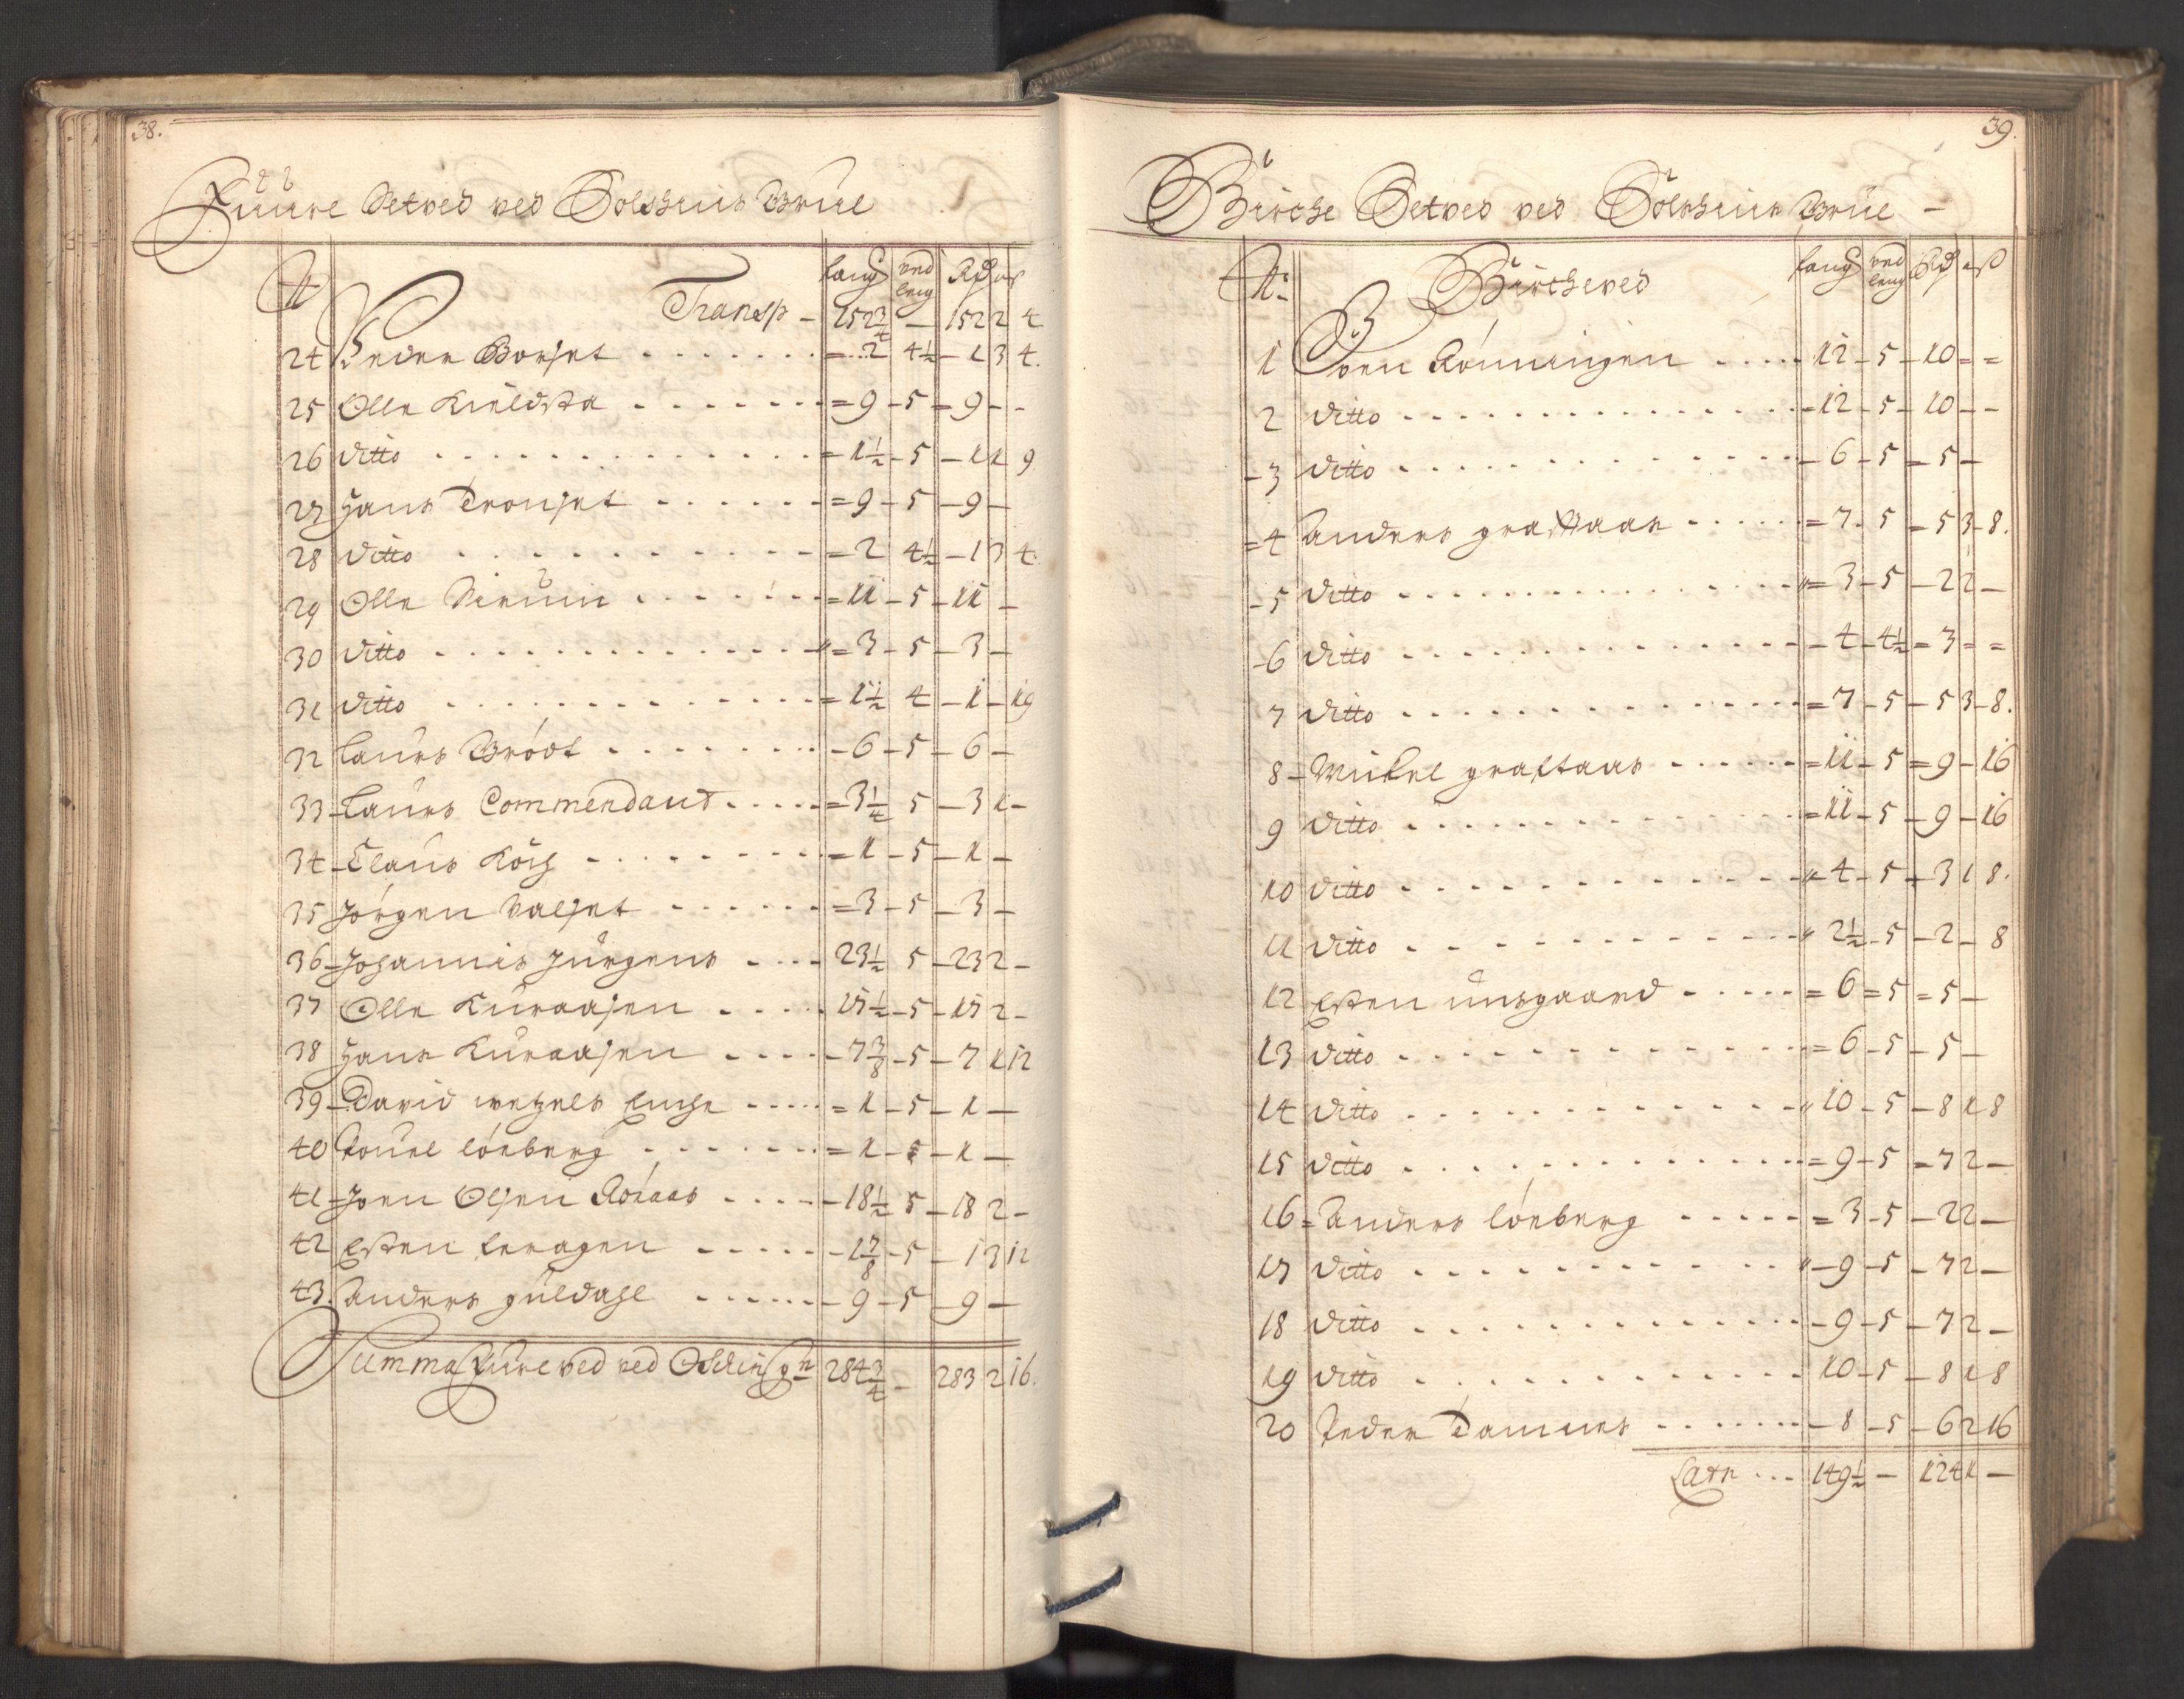 38.
Fuure Setved ved Solskins Brüe
N Transp - 152 3/4 - 152 2 4
Laug ved leng Rd ort ß
24 Peder Borset - 2 4 1/2 - 1 3 4.
25 Olle Kieldsta = 9 - 5 = 9 - -
26 ditto = 1 1/2 - 5 - 1 1 9
27 Hans Tronset = 9 - 5 - 9 -
28 ditto = 2 4 1/2 - 1 3 4
29 Olle = 11 - 5 - 11 -
30 ditto = 3 - 5 - 3 -
31 ditto = 1 1/2 4 - 1 - 19
32 Laurs Brødt - 6 - 5 - 6 -
33 Laurs Commendant = 3 1/4 5 - 3 1 -
34 Claus Koch = 1 - 5 - 1 -
35 Jørgen Valset = 3 - 5 - 3 -
36 Johannis Jürgens - 23 1/2 5 - 23 2 -
37 Olle Kuraasen 15 1/2 - 5 - 15 2 -
38 Hans Kuraasen - 7 3/8 - 5 - 7 1 12
39 David Enche = 1 - 5 - 1 -
40 Povel lönberg = 1 - 5 - 1 -
41 Joen Olsen Röraas - 18 1/2 5 - 18 2 -
42 Esten leragen - 1 7/8 - 5 - 1 3 12
43. Anders guldahl - 9 - 5 - 9 -
Summa Fure ved ved 284 3/4 - 283 2 16.
39.
Birche Setved ved Solskins Brüe -
N: Bircheved Laug ved leng Rd ort ß
1 Joen Rönningen 12 - 5 - 10 = =
2 ditto = 12 - 5 - 10 - -
3 ditto - 6 - 5 = 5 -
4 Anders graftaas = 7 - 5 = 5 3 - 8.
5 ditto = 3 - 5 - 2 2 -
6 ditto - 4 - 4 1/2 = 3 = =
7 ditto = 7 - 5 - 5 3 - 8.
8 Mickel graftaas = 11 - 5 = 9 - 16
9 ditto = 11 - 5 - 9 - 16
10 ditto - 4 - 5 - 3 1 8.
11 ditto 2 1/2 - 5 - 2 - 8
12 Esten unsgaard = 6 = 5 = 5 -
13 ditto = 6 - 5 - 5 -
14 ditto 10 - 5 - 8 1 8
15 ditto = 9 - 5 = 7 2 -
16 Anders lönberg = 3 - 5 - 2 2 -
17 ditto - 9 - 5 - 7 2 -
18 ditto - 9 - 5 - 7 2 -
19 ditto 10 - 5 - 8 1 8
20 Peder Tamnes - 8 - 5 - 6 2 16
Latr 149 1/2 - 124 1 -